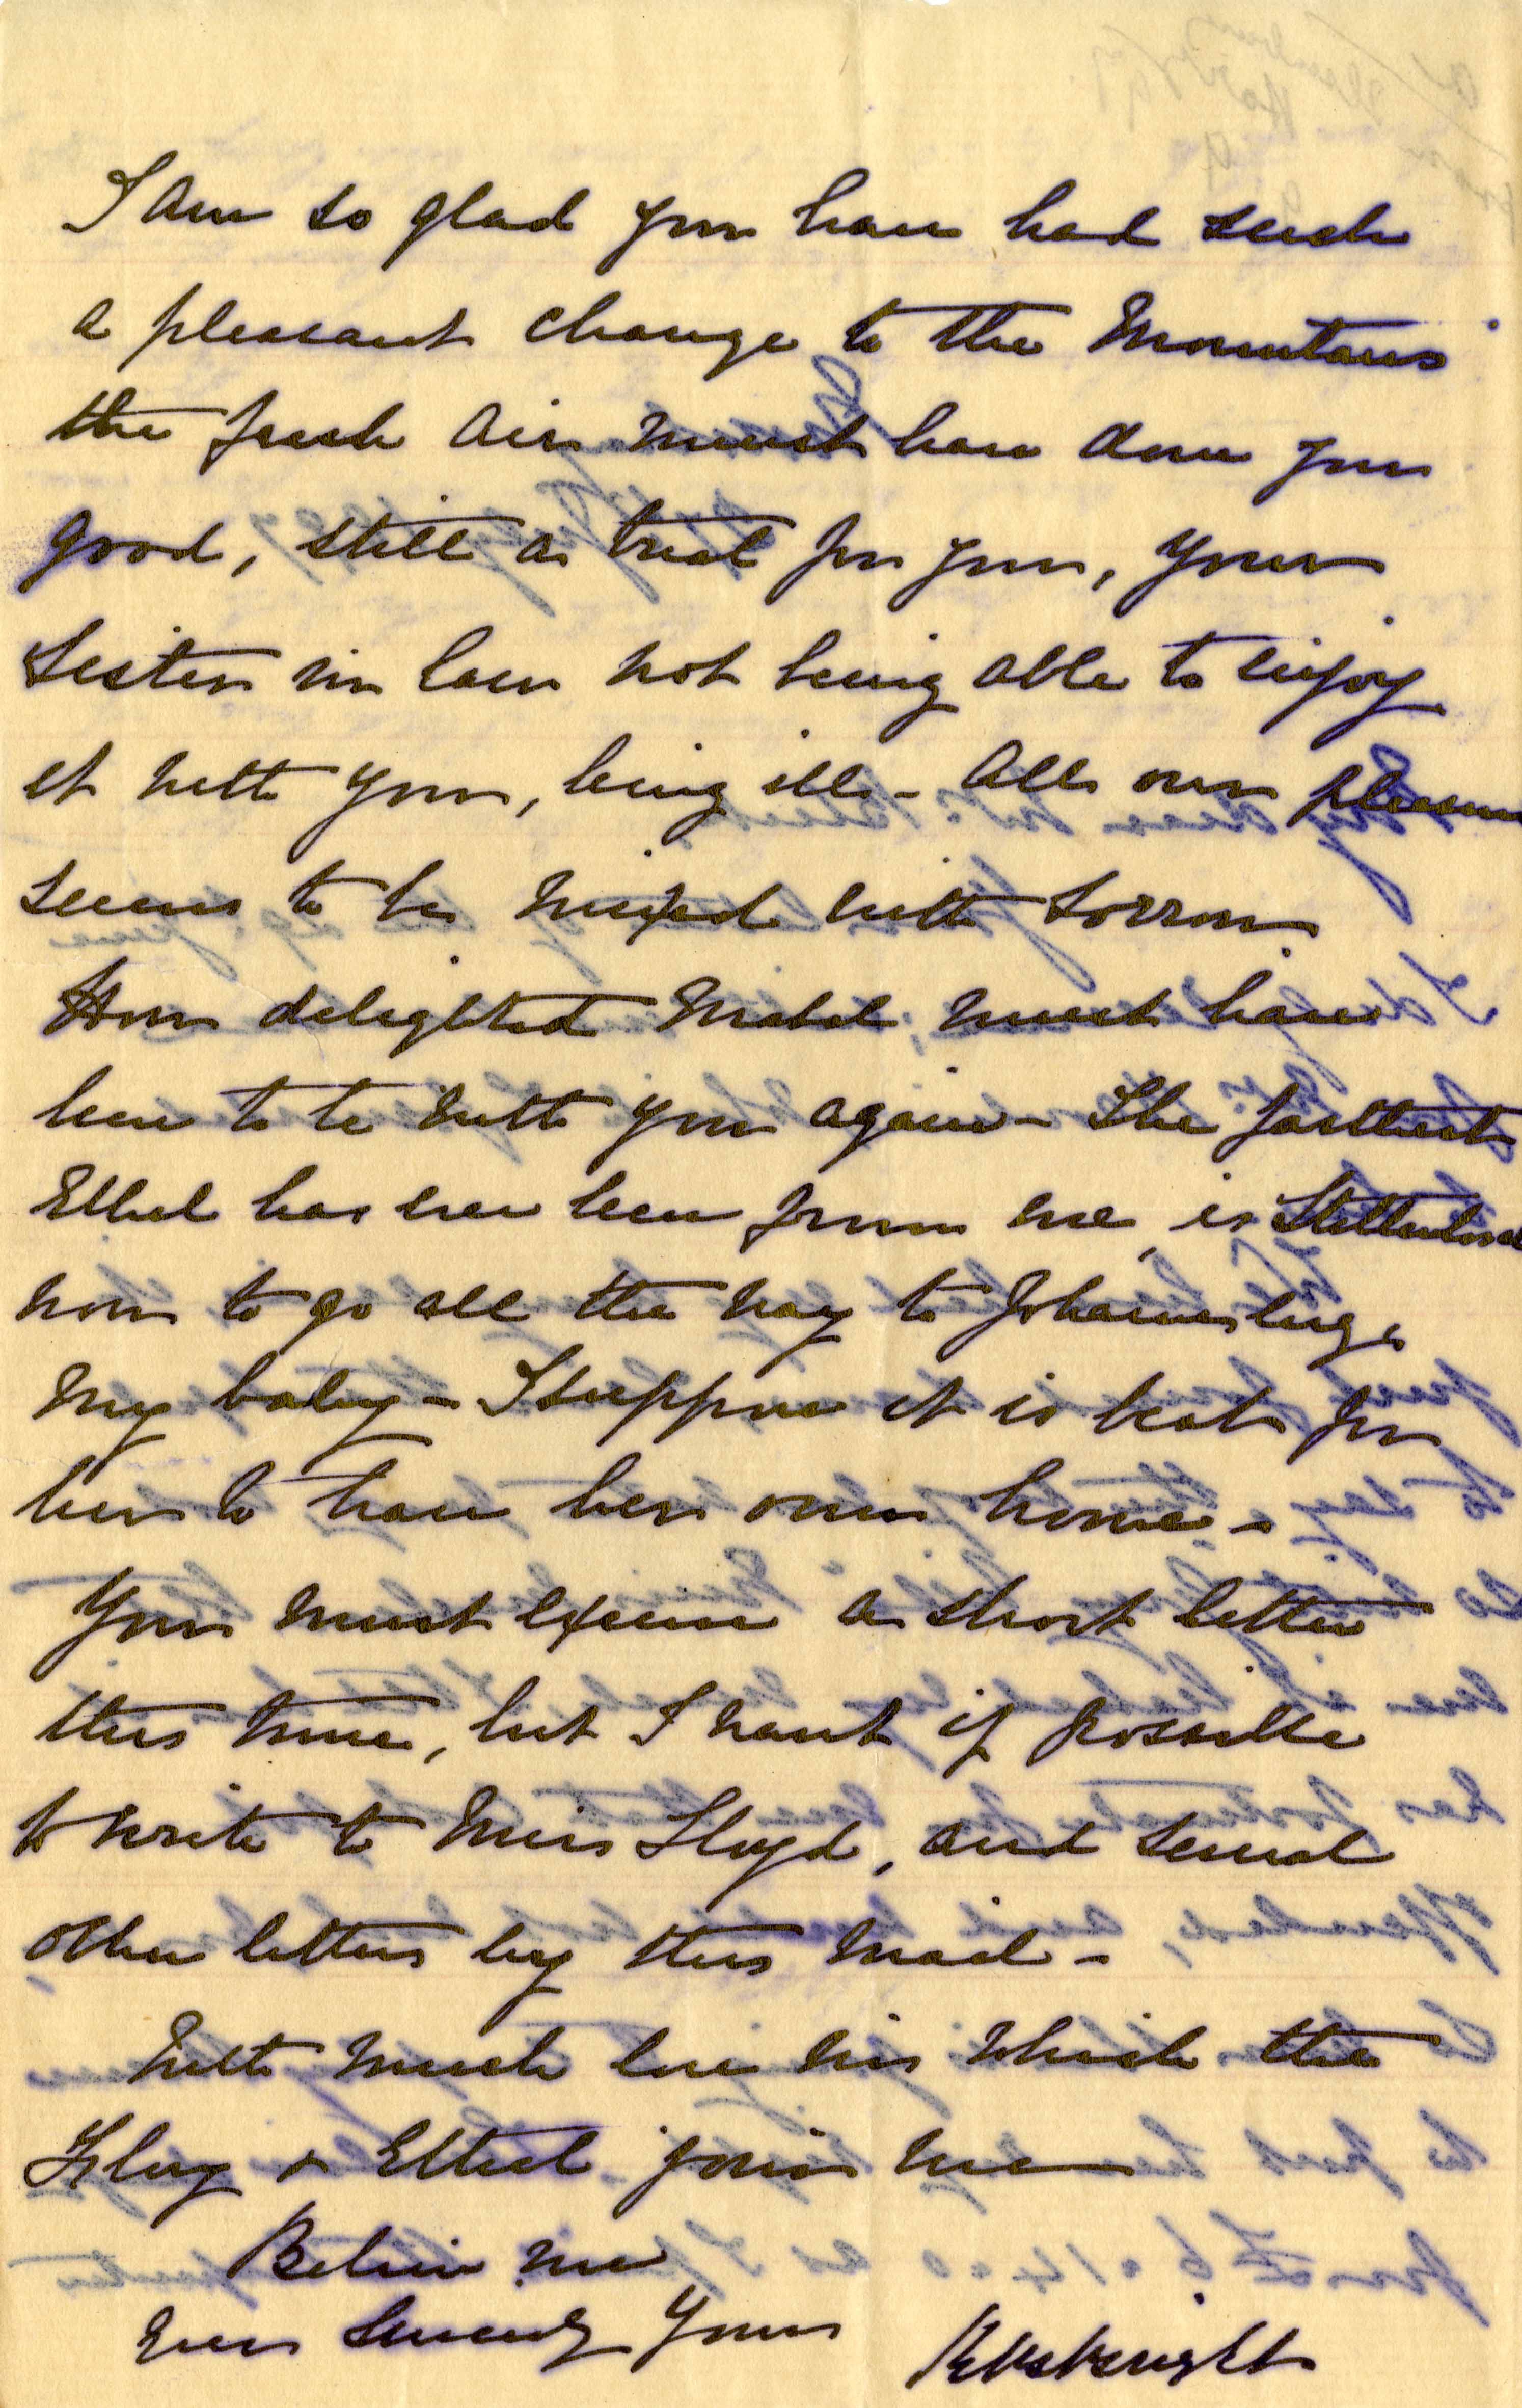 I am so glad you have had such
a pleasant change to the Mountains
the fresh air must have done you
good, still a trial for you, your
Sister in law not being able to enjoy
it with you, being ill - All our pleasure
seems to be mixed with sorrow.
How delighted Mabel, must have
been to be with you again - The farthest
Ethel has ever been from me, is Stellenbosch
now to go all the way to Johannesburg,
my baby - I suppose it is best for
her to have her own home -
You must excuse a short letter
this time, but I want if possible
to write to Miss Lloyd, and several
other letters by this mail -
With much love in which the
& Ethel join me
Believe me
Ever Sincerely Yours